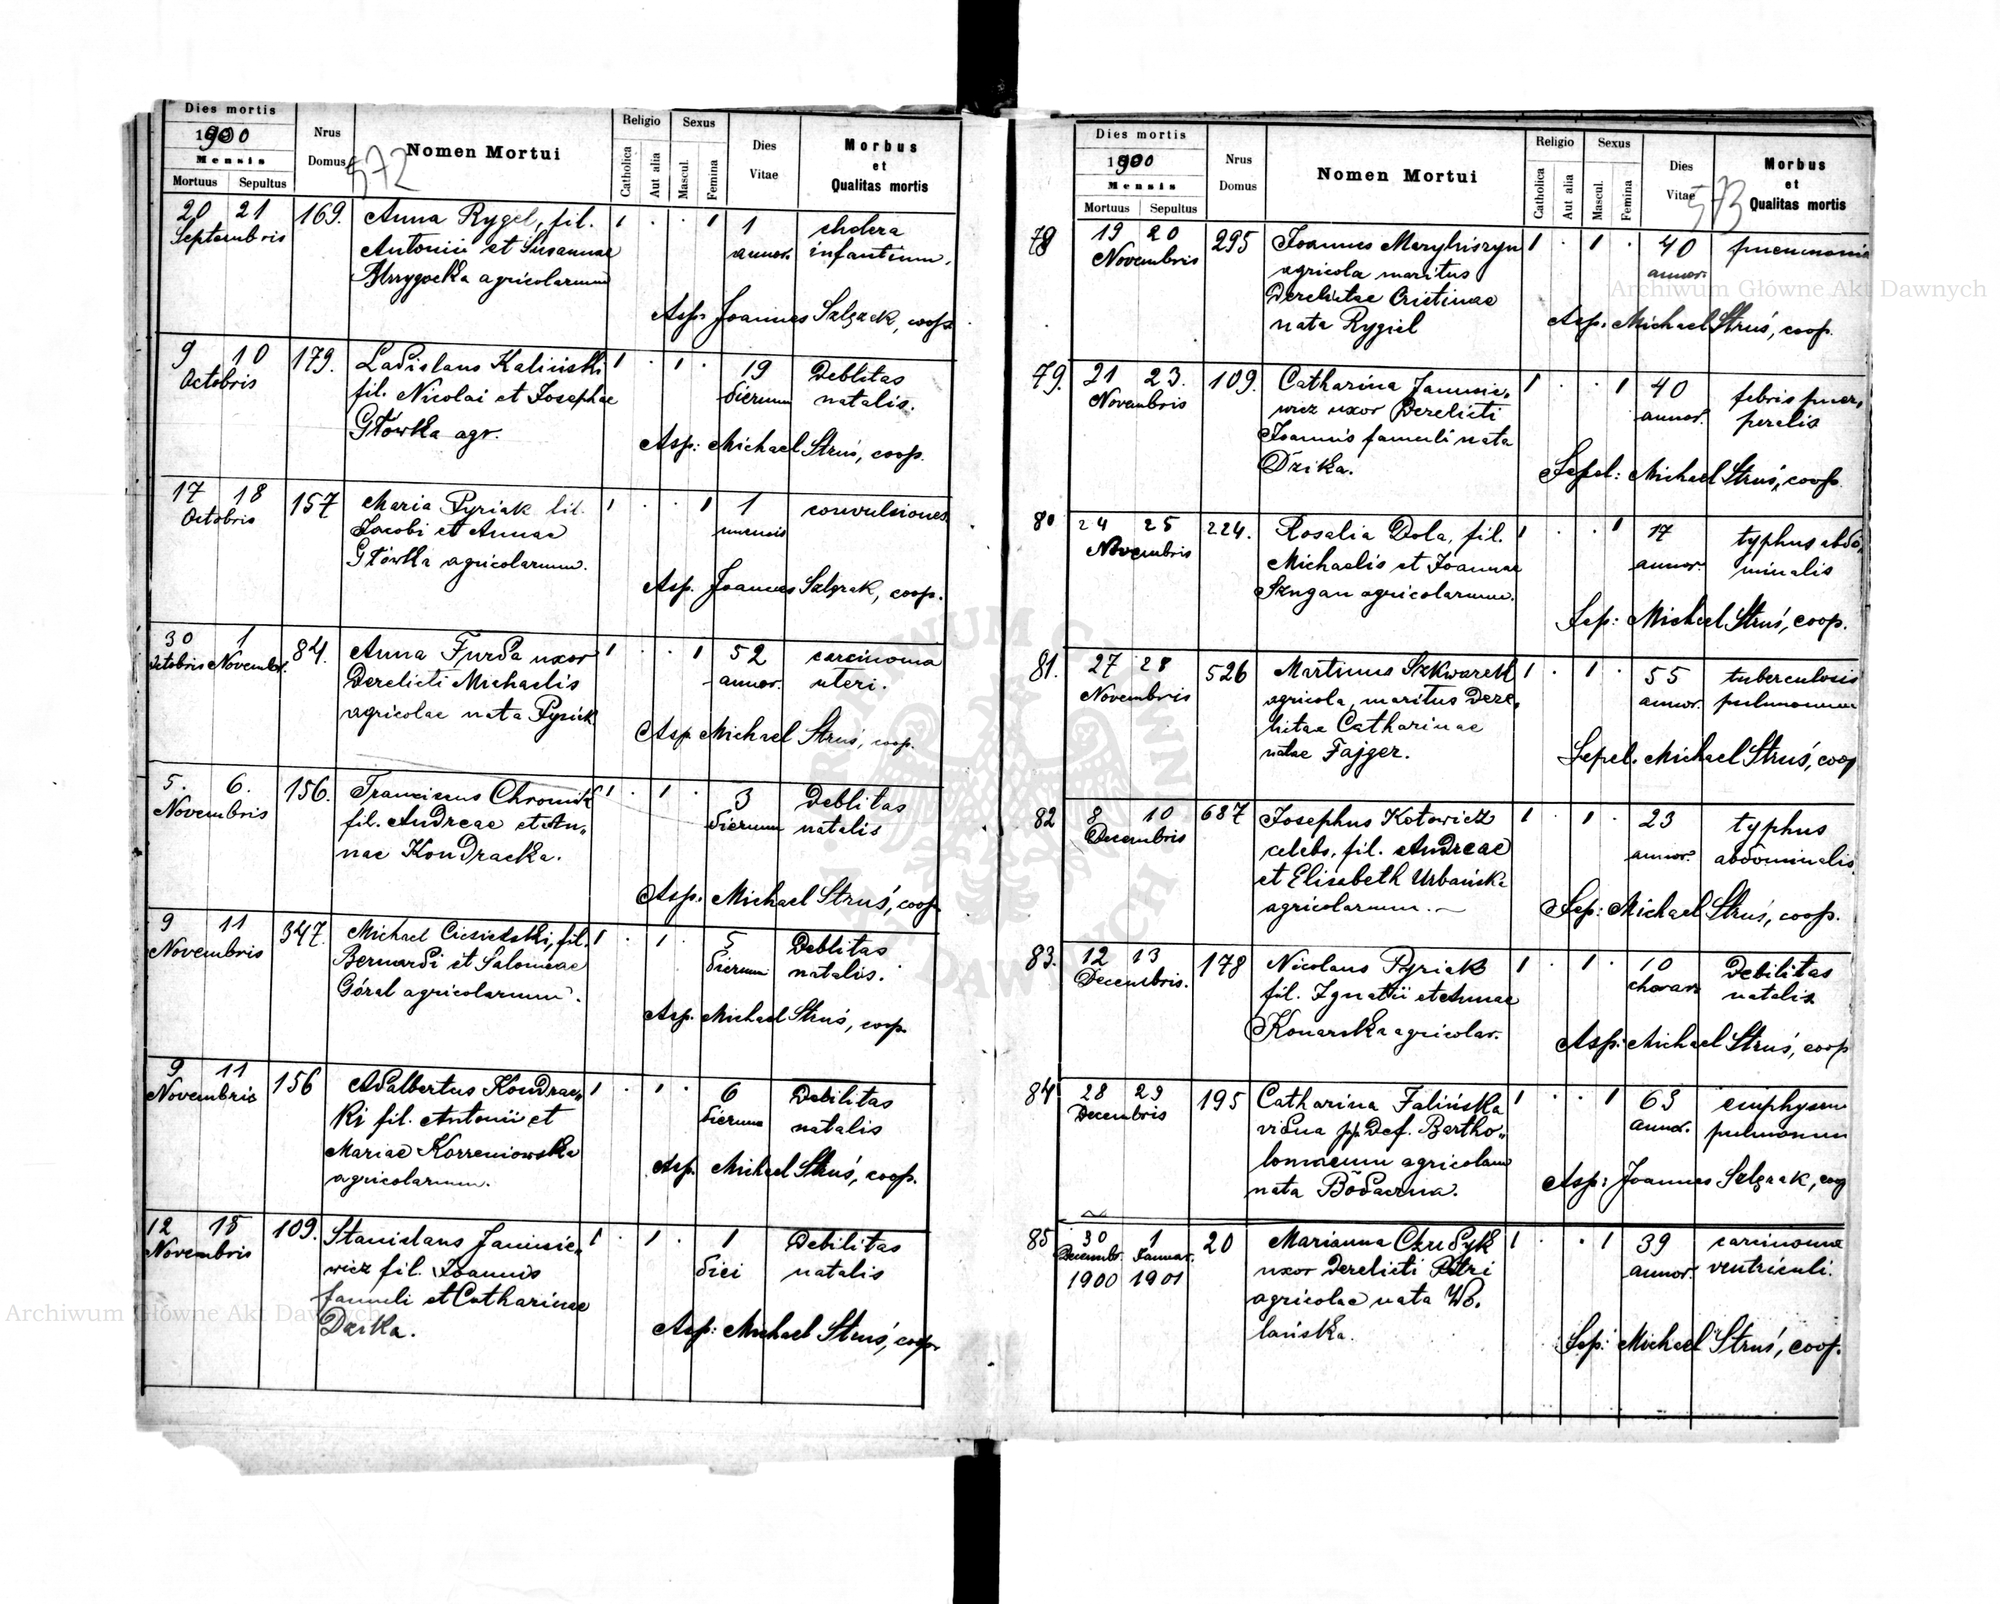 Dies mortis
1900
Mensis
Mortuus Sepultus
Nrus
Domus
572
Nomen Mortui
Religio
Catholica
Aut alia
Sexus
Mascul.
Femina
Dies
Vitae
Morbus
et
Qualitas mortis
20 21 169. Anna Rygel, fil. 1 . . 1 1 cholera
Septembris Antonii et Susannae annor. infantium.
agricolarum
Asp. Joannes Szlęzak, coop.
9 10 179. Ladislaus Kaliński 1 . 1 . 19 Deblitas
Octobris fil. Nicolai et Josephae dierum natalis.
Główka agr.
Asp: Michael Struś, coop.
17 18 157 Maria Pyriak fil. 1 . . 1 1 convulsiones
Octobris Jacobi et Annae mensis
Główka agricolarum.
Asp. Joannes Szlęzak, coop.
30 1 84. Anna Furda uxor 1 . . 1 52 carcinoma
Octobris Novembr. Derelicti Michaelis annor. uteri.
agricolae nata Pyriak
Asp Michael Struś, coop.
5. 6. 156. Franciscus Chromik 1 . 1 . 3 Deblitas
Novembris fil. Andreae et An„ dierum natalis
nae Kondracka.
Asp. Michael Struś, coop
9 11 347. Michael Ciesielski, fil. 1 . 1 . 5 Deblitas
Novembris Bernardi et Salomeae dierum natalis.
Góral agricolarum.
Asp. Michael Struś, coop.
9 11 156 Adalbertus Kondrac„ 1 . 1 . 6 Debilitas
Novembris ki fil. Antonii et dierum natalis
Mariae Korzeniowska
agricolarum.
Asp. Michael Struś, coop.
12 13 109. Stanislaus Janusie„ 1 . 1 . 1 Debilitas
Novembris wicz fil. Joannis diei natalis
famuli et Catharinae
Dzika.
Asp: Michael Struś, coop.
Dies mortis
1900
Mensis
Mortuus Sepultus
Nrus
Domus
Nomen Mortui
Religio
Catholica
Aut alia
Sexus
Mascul.
Femina
Dies
Vitae
573
Morbus
et
Qualitas mortis
78 19 20 295 Joannes Maryniszyn 1 . 1 . 40 pneumonia
Novembris agricola maritus annor.
Derelictae Cristinae
nata Rygiel
Asp: Michael Struś, coop.
79. 21 23. 109. Catharina Janusie„ 1 . . 1 40 febris puer„
Novembris wicz uxor Derelicti annor. peralis
Joannis famuli nata
Dzika.
Sepel: Michael Struś, coop.
80 24 25 224. Rosalia Dola, fil. 1 . . 1 17 typhus abdo„
Novembris Michaelis et Joannae annor. minalis
agricolarum.
Sep: Michael Struś, coop.
81. 27 28 526 Martinus Szkwarek 1 . 1 . 55 tuberculosis
Novembris agricola, maritus Dere„ annor. pulmonum
lictae Catharinae
natae Fajger.
Sepel. Michael Struś, coop
82 8 10 687 Josephus Kotowicz 1 . 1 . 23 typhus
Decembris celebs, fil. Andreae annor. abdominalis.
et Elisabeth Urbańska
agricolarum.
Sep: Michael Struś, coop.
83. 12 13 178 Nicolaus Pyriak 1 . 1 . 10 Debilitas
Decembris. fil. Ignatii et Annae natalis
Konarska agricolar.
Asp: Michael Struś, coop
84 28 29 195 Catharina Falińska 1 . . 1 63 emphysem
Decembris vidua pp. Def. Bartho„ annor. pulmonum
lomaeum agricolam
nata
Asp: Joannes Szlęzak, coop
85 30 1 20 Marianna Czudyk 1 . . 1 39 carcinoma
Decembr. Januar. uxor Derelicti Petri annor. ventriculi.
1900 1901 agricolae nata Wo„
lańska.
Sep: Michael Struś, coop.
Archiwum Główne Akt Dawnych
Archiwum Główne Akt Dawnych
ARCHIWUM GŁÓWNE AKT DAWNYCH